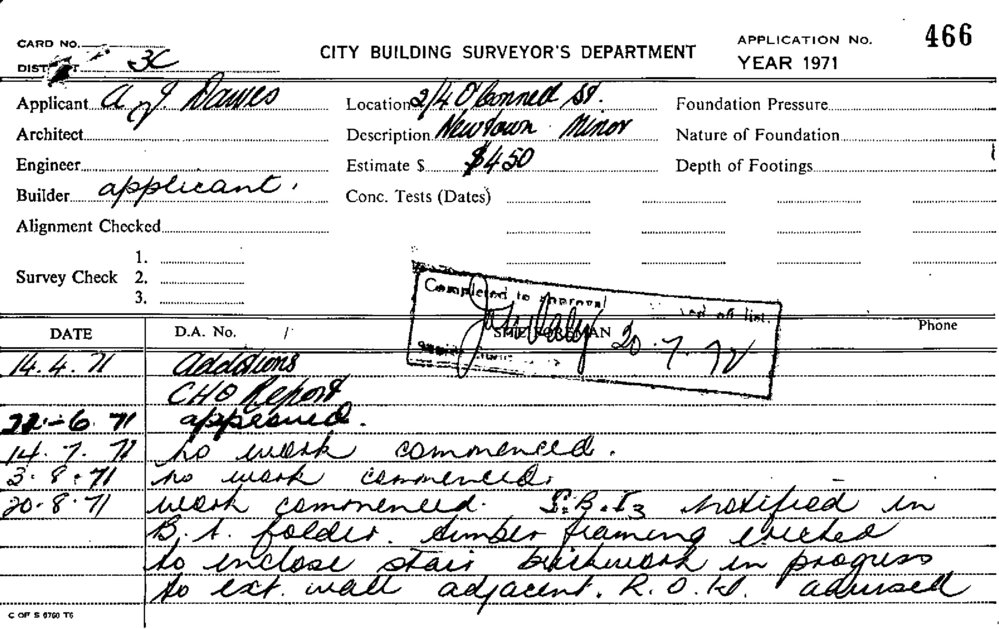 CARD NO.
DISTRICT 3C
CITY BUILDING SURVEYOR'S DEPARTMENT
APPLICATION No. 466
YEAR 1971
Applicant A J. Dawes
Location 2/4 O'Connell St.
Foundation Pressure
Architect
Description Newtown Minor
Nature of Foundation
Engineer
Estimate $ $450
Depth of Footings
Builder applicant.
Conc. Tests (Dates)
Alignment Checked
Survey Check
1.
2.
3.
Completed to approval
off list.
20.7.72
DATE
D.A. No. /
SITE FOREMAN
Phone
14.4.71 Additions
CHO Report
22.-6.71 approved.
14.7.71 no work commenced.
3.8.71 no work commenced.
20.8.71 work commenced. notified in
B.A. folder. timber framing erected
to enclose stair brickwork in progress
to ext. wall adjacent. R.O.W. advised
C OF S 6760 T6